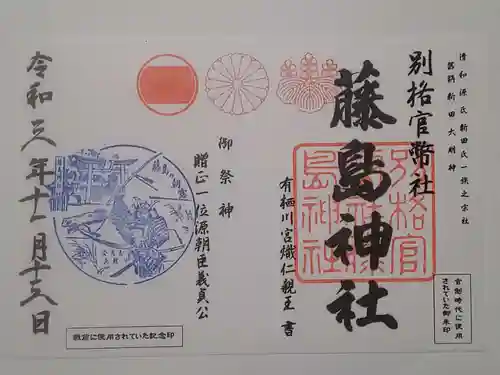 清和源氏新田氏一族之宗社
旧称 新田大明神
別格官幣社
藤島神社
別格官
幣社藤
島神社
有栖川宮熾仁親王 書
御祭神
贈正一位源朝臣義貞公
令和三年十一月十三日
創建時代に使用
されていた御朱印
戦前に使用されていた記念印